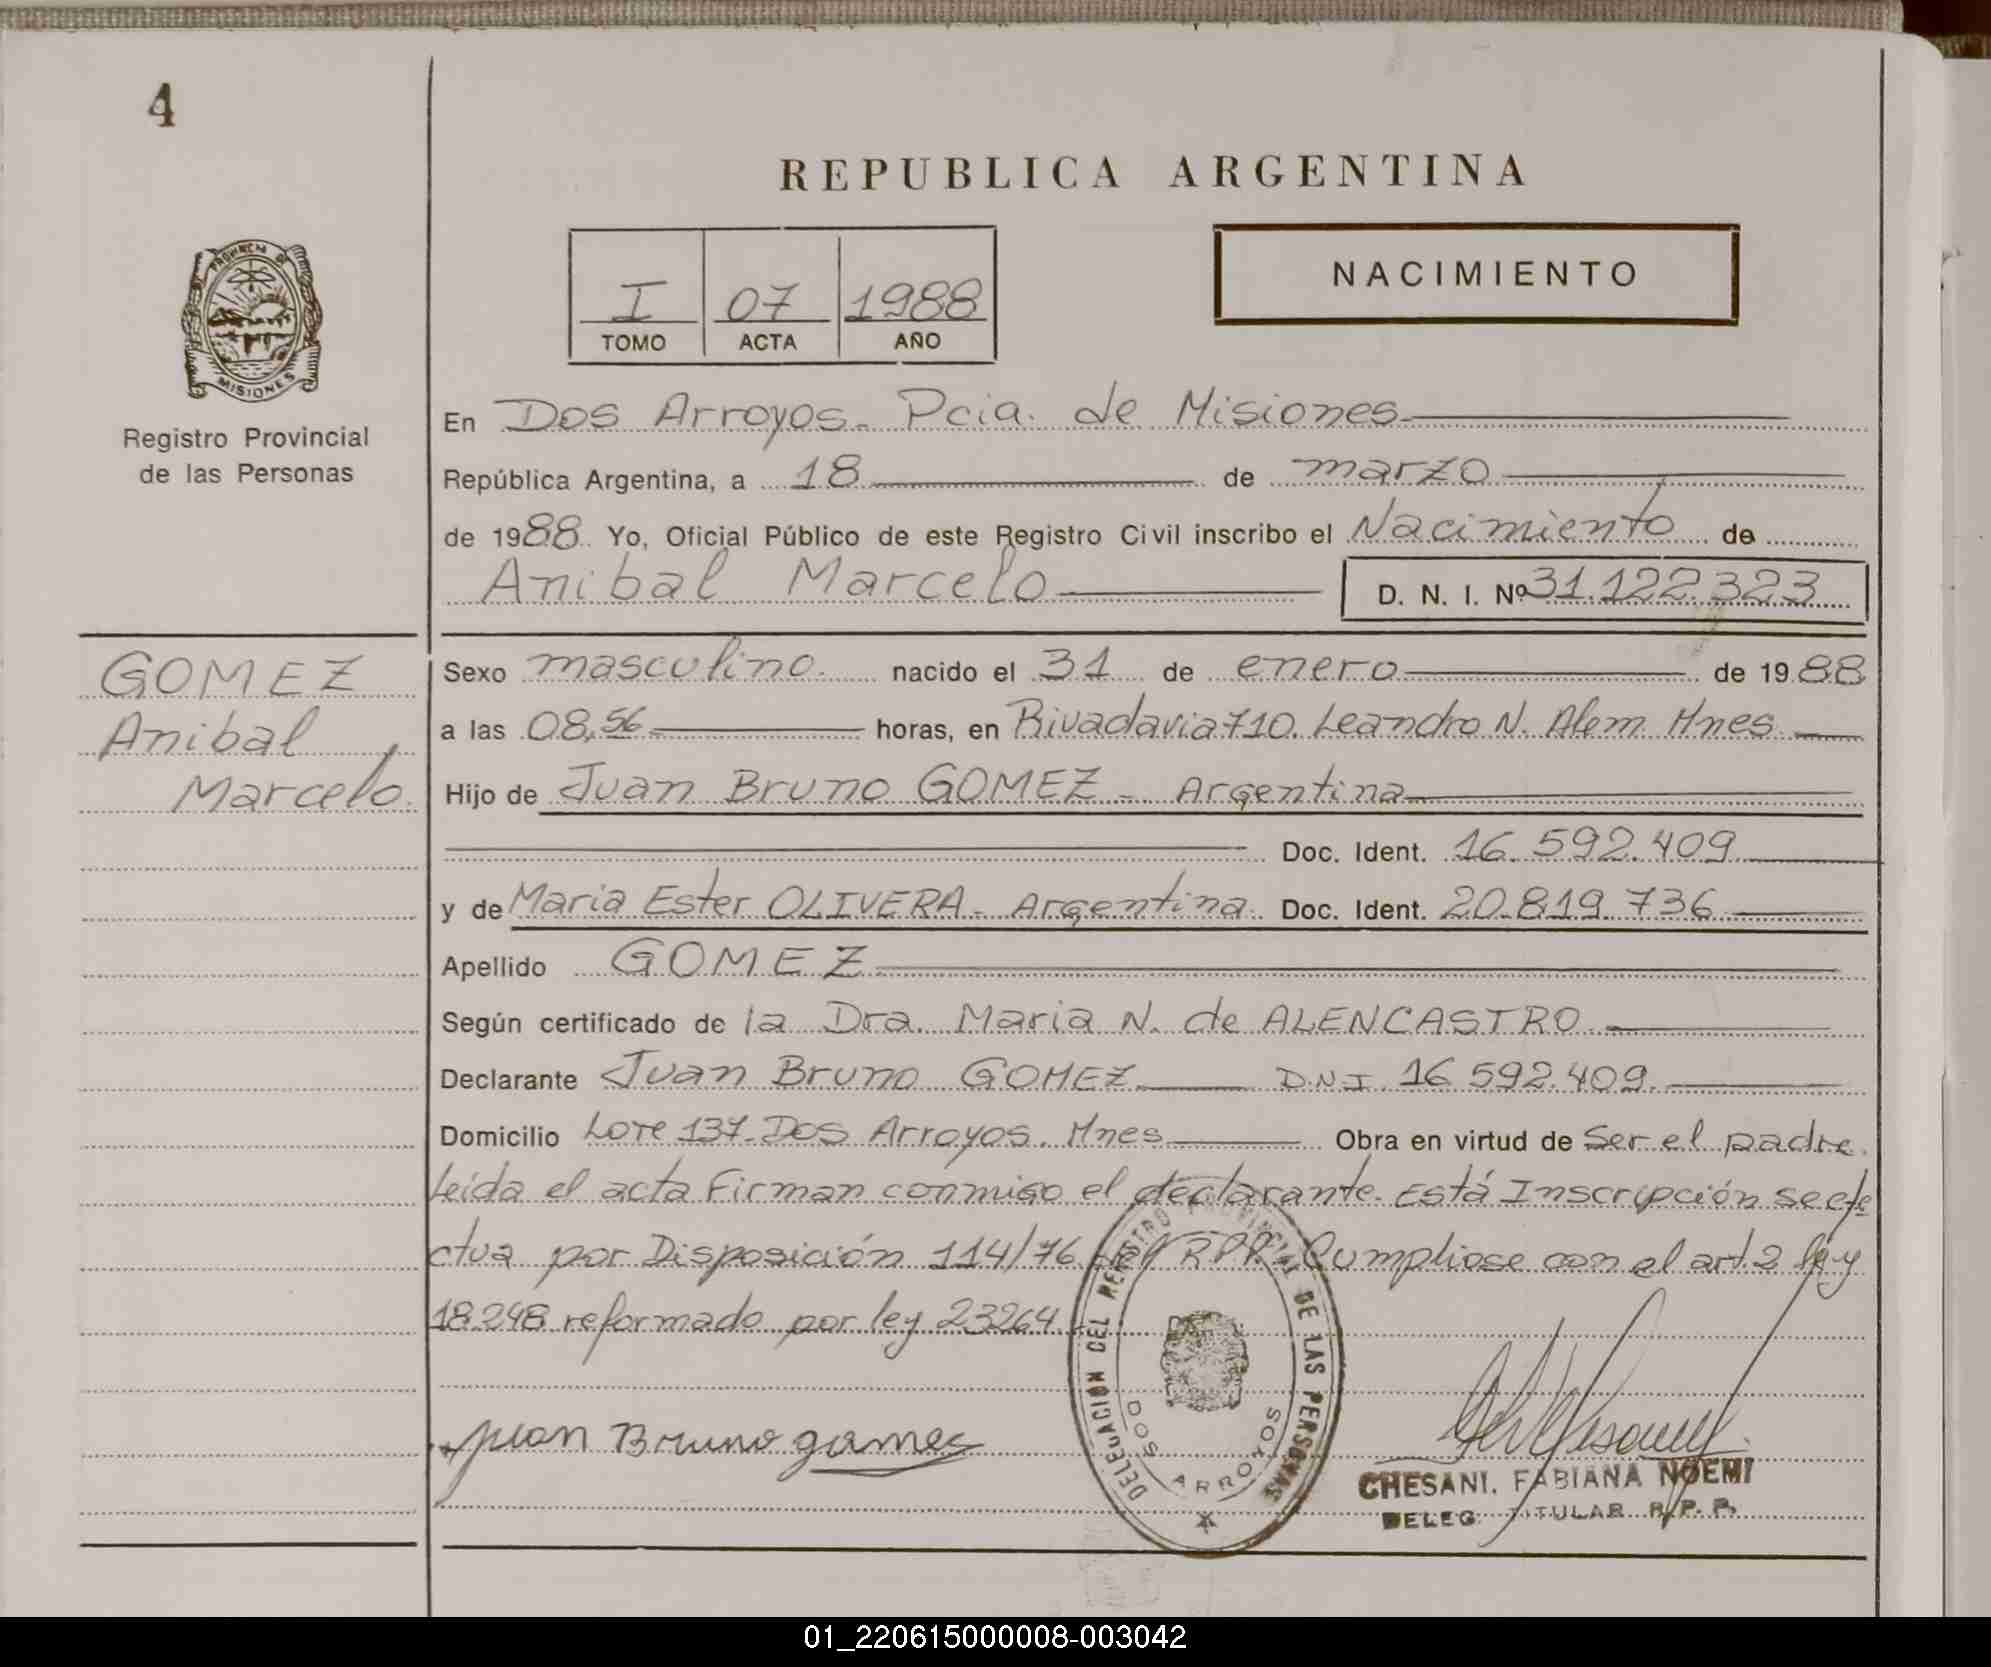 4
REPUBLICA ARGENTINA
I 07 1988
TOMO ACTA AÑO
NACIMIENTO
PROVINCIA DE
MISIONES
Registro Provincial
de las Personas
En Dos Arroyos. Pcia. de Misiones
República Argentina, a 18 de marzo
de 1988 Yo, Oficial Público de este Registro Civil inscribo el Nacimiento de
Anibal Marcelo D. N. I. Nº 31.122.323
GOMEZ
Anibal
Marcelo.
Sexo masculino. nacido el 31 de enero de 1988
a las 08,56 horas, en Rivadavia 710. Leandro N. Alem Mnes
Hijo de Juan Bruno GOMEZ - Argentina
Doc. Ident. 16.592.409
y de Maria Ester OLIVERA - Argentina. Doc. Ident. 20.819.736
Apellido GOMEZ
Según certificado de la Dra. Maria N. de ALENCASTRO
Declarante Juan Bruno GOMEZ D.N.I. 16.592.409.
Domicilio Lote 137. Dos Arroyos. Mnes Obra en virtud de Ser el padre.
Leída el acta Firman conmigo el declarante. Está Inscripción se efe
ctua por Disposición 114/76 R.P.P. Cumpliose con el art. 2 ley
18.248 reformado por ley 23264.
Juan Bruno gomes
DELEGACION DEL REGISTRO PROVINCIAL DE LAS PERSONAS
DOS ARROYOS
CHESANI, FABIANA NOEMI
DELEG. TITULAR R. P. P.
01_220615000008-003042